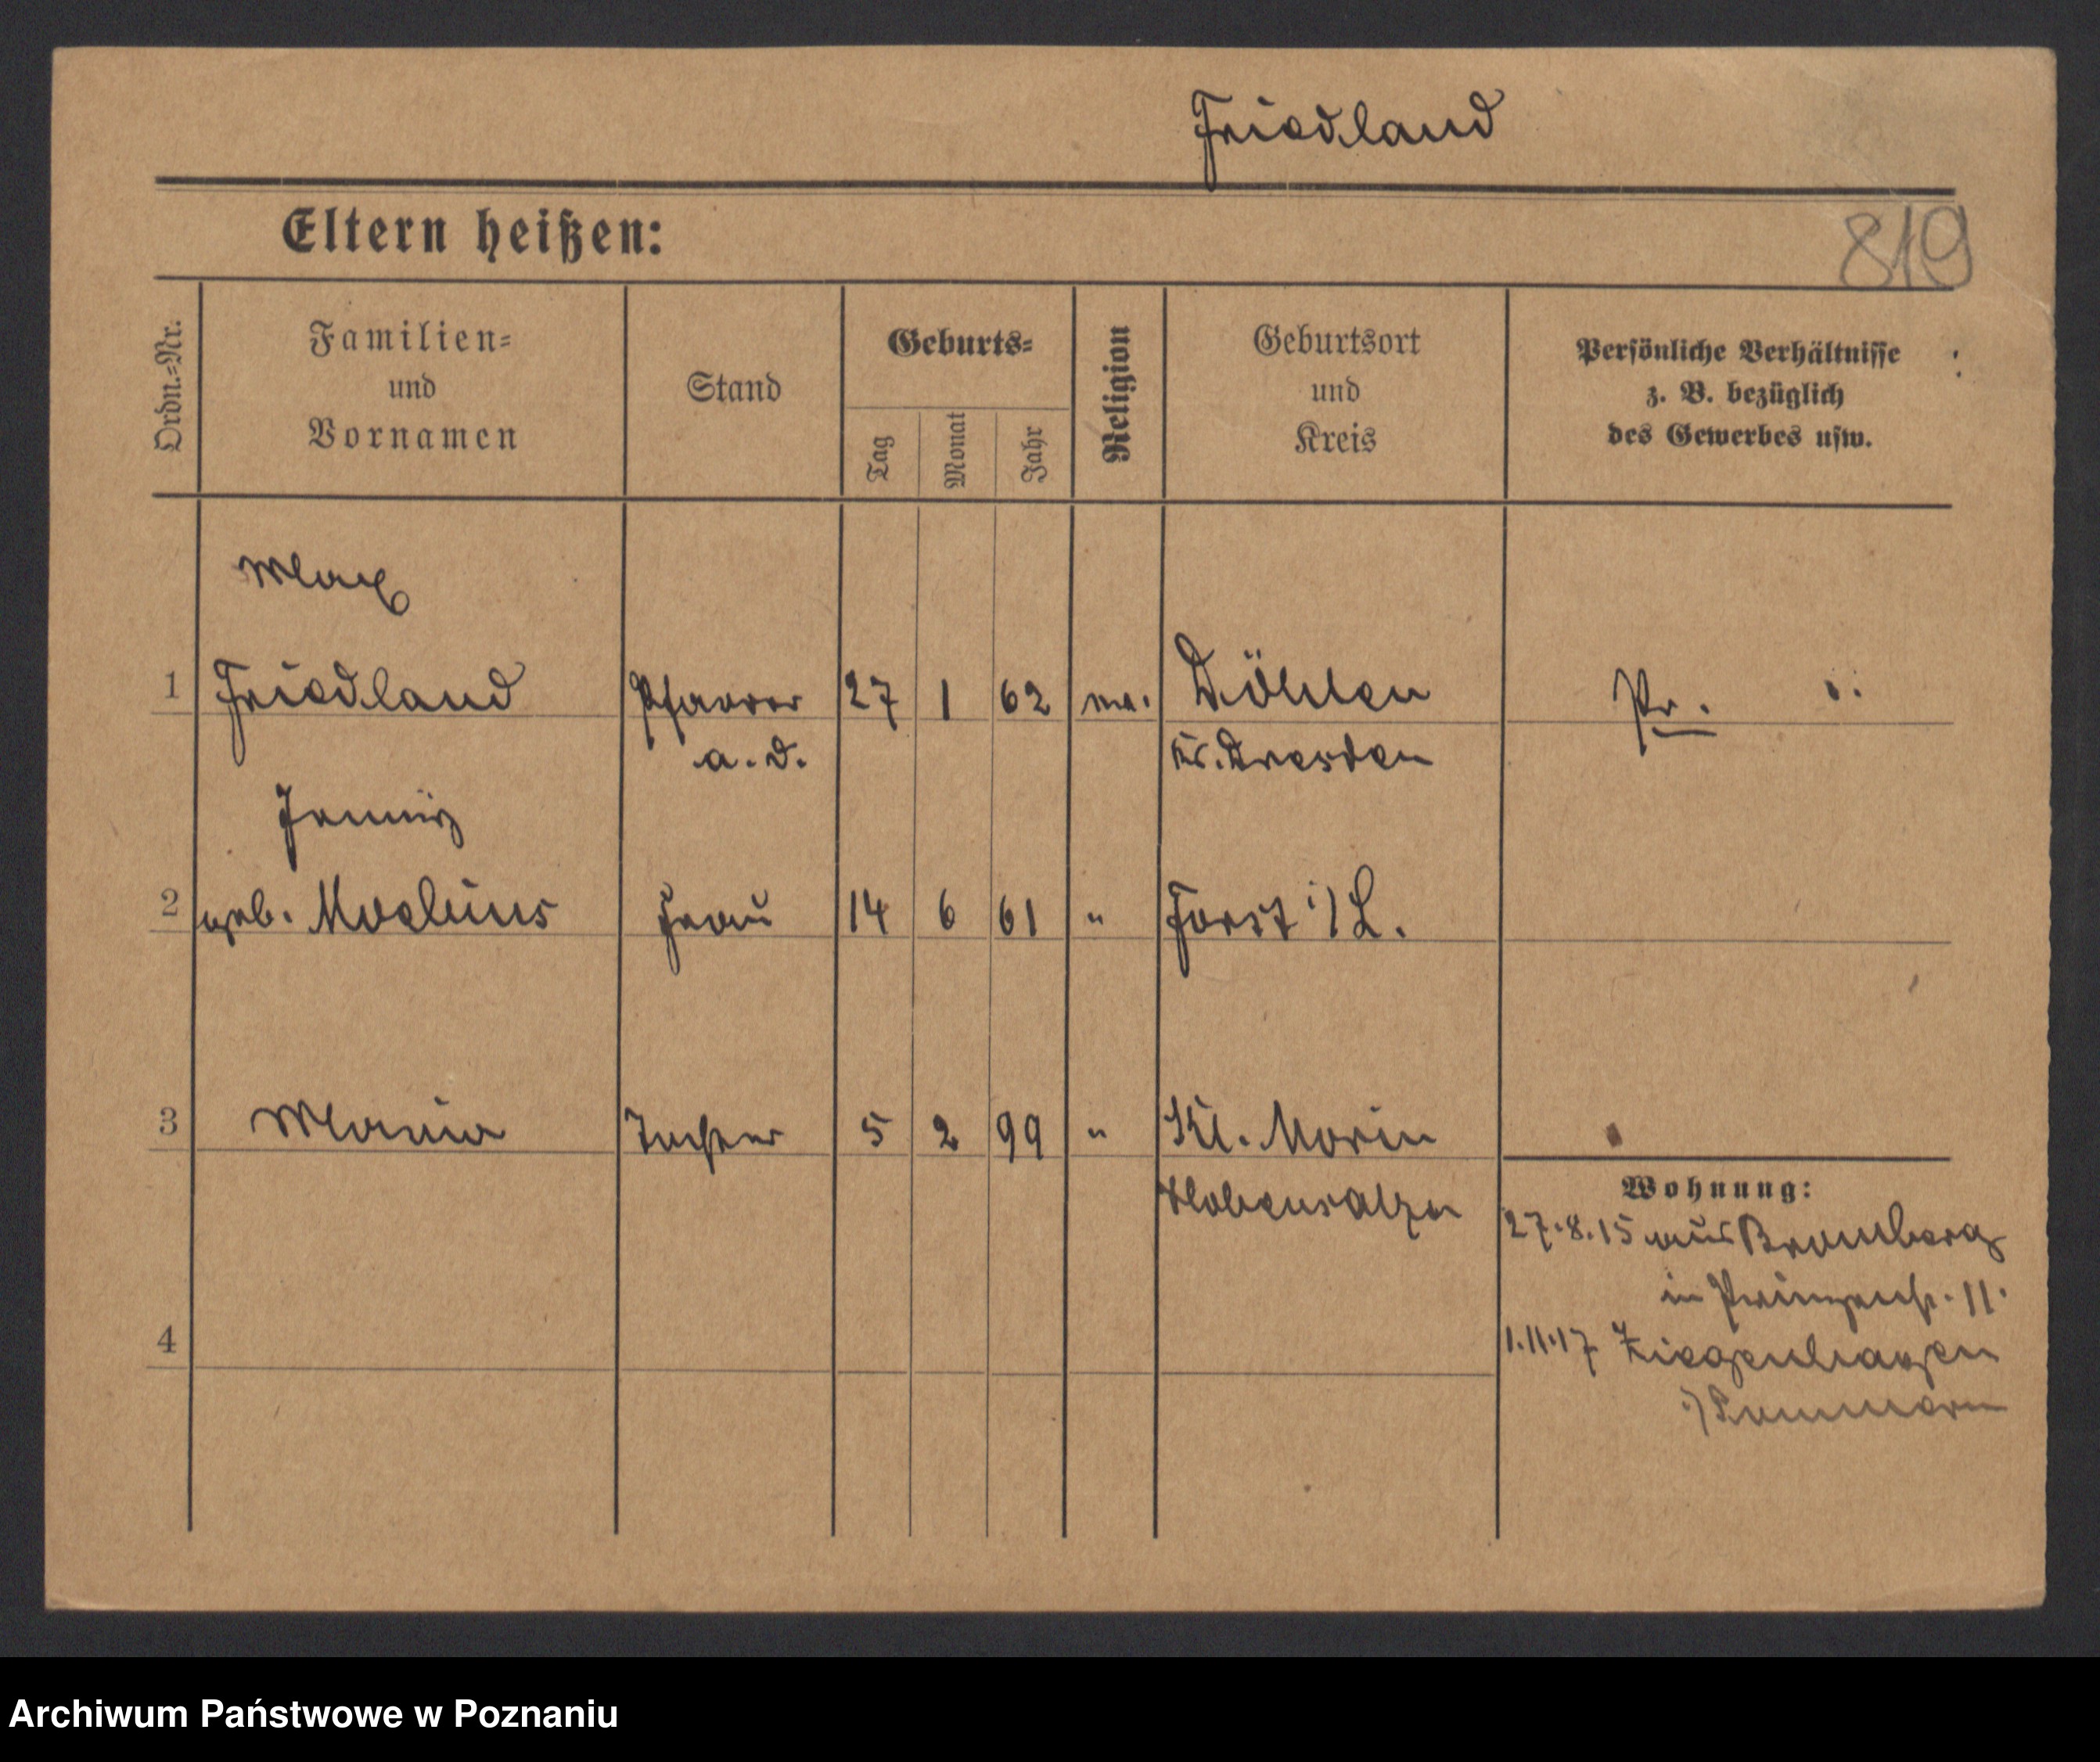 Friedland
Eltern heißen:
819
Ordn.=Nr.
Familien=
und
Vornamen
Stand
Geburts=
Tag
Monat
Jahr
Religion
Geburtsort
und
Kreis
Persönliche Verhältnisse
z. B. bezüglich
des Gewerbes usw.
Max
1 Friedland Pfarrer 27 1 62 Döhlen Pr.
a. D. Kr. Dresden
Jenny
2 geb. Moebius Frau 14 6 61 " Forst i/L.
3 Maria Tochter 5 2 99 " Kl. Morin
Hohensalza
Wohnung:
27.8.15 aus Bromberg
in Prinzenstr. 11.
4
1.11.17 Ziegenhagen
i/Pommern
Archiwum Państwowe w Poznaniu